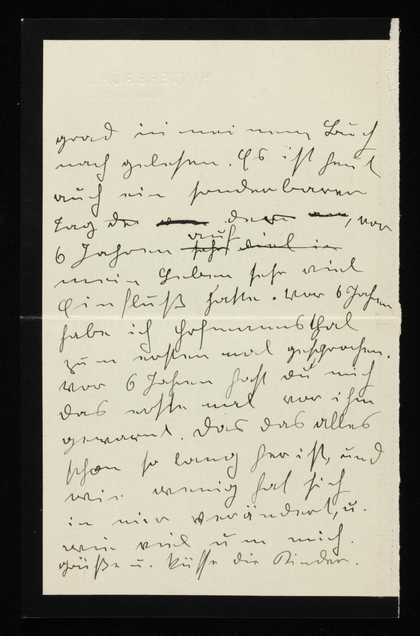 grad in meinem Buch
nachgelesen. Es ist heut
auch ein sonderbarer
Tag der, vor
6 Jahren auf sehr viel in
mein Leben sehr viel
Einfluß hatte. Vor 6 Jahren
habe ich Hofmannsthal
zum ersten mal gesprochen.
Vor 6 Jahren hast du mich
das erste mal vor ihm
gewarnt. Das das alles
schon so lang her ist, und
wie wenig hat sich
in mir verändert, u.
wie viel um mich.
Grüße u. küsse die Kinder.